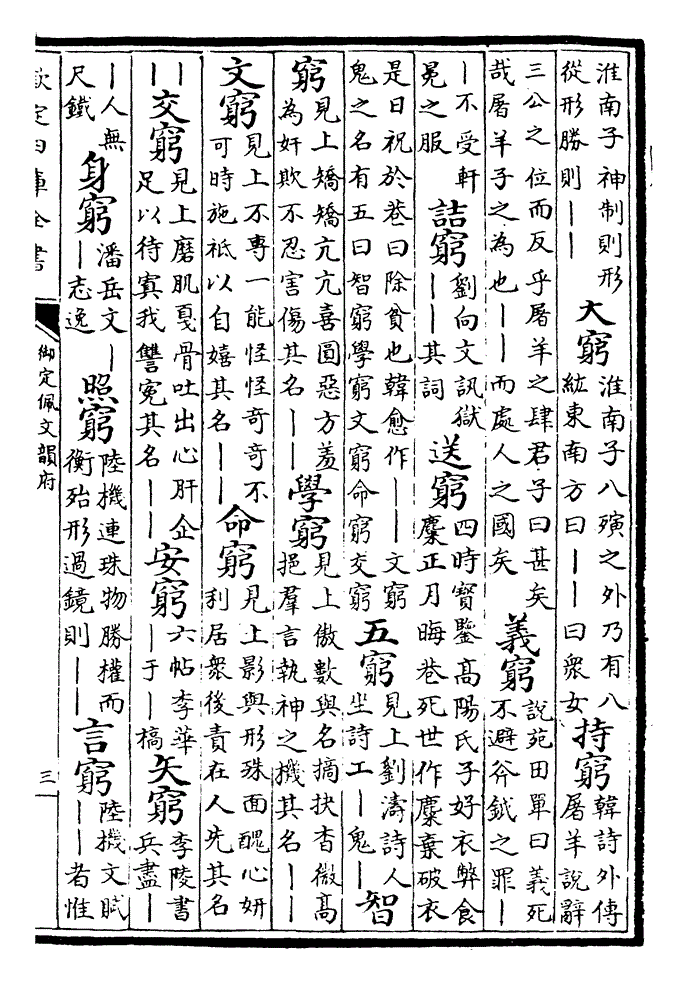 淮南子神制則形從形勝則｜｜大窮淮南子八殥之外乃有八紘東南方曰｜｜曰衆女持窮韓詩外傳屠羊說辭
三公之位而反乎屠羊之肆君子曰甚矣哉屠羊子之為也｜｜而處人之國矣義窮說苑田單曰義死不避斧鉞之罪｜
｜不受軒冕之服詰窮劉向文訊獄｜｜其詞送窮四時寶鑒高陽氏子好衣弊食麋正月晦巷死世作麋棄破衣
是日祝於巷曰除貧也韓愈作｜｜文窮鬼之名有五曰智窮學窮文窮命窮交窮五窮見上劉濤詩人坐詩工｜鬼｜智
窮見上矯矯亢亢喜圓惡方羞為奸欺不忍害傷其名｜｜學窮見上傲數與名摘抉杳微高挹羣言執神之機其名｜｜
文窮見上不專一能怪怪奇奇不可時施祗以自嬉其名｜｜命窮見上影與形殊面醜心妍利居衆後責在人先其名
｜｜交窮見上磨肌戛骨吐出心肝企足以待寘我讐冤其名｜｜安窮六帖李華｜于｜槁矢窮李陵書兵盡｜
｜人無尺鐵身窮潘岳文｜｜志逸照窮陸機連珠物勝權而衡殆形過鏡則｜｜言窮陸機文賦｜｜者惟
欽定四庫全書
御定佩文韻府
三